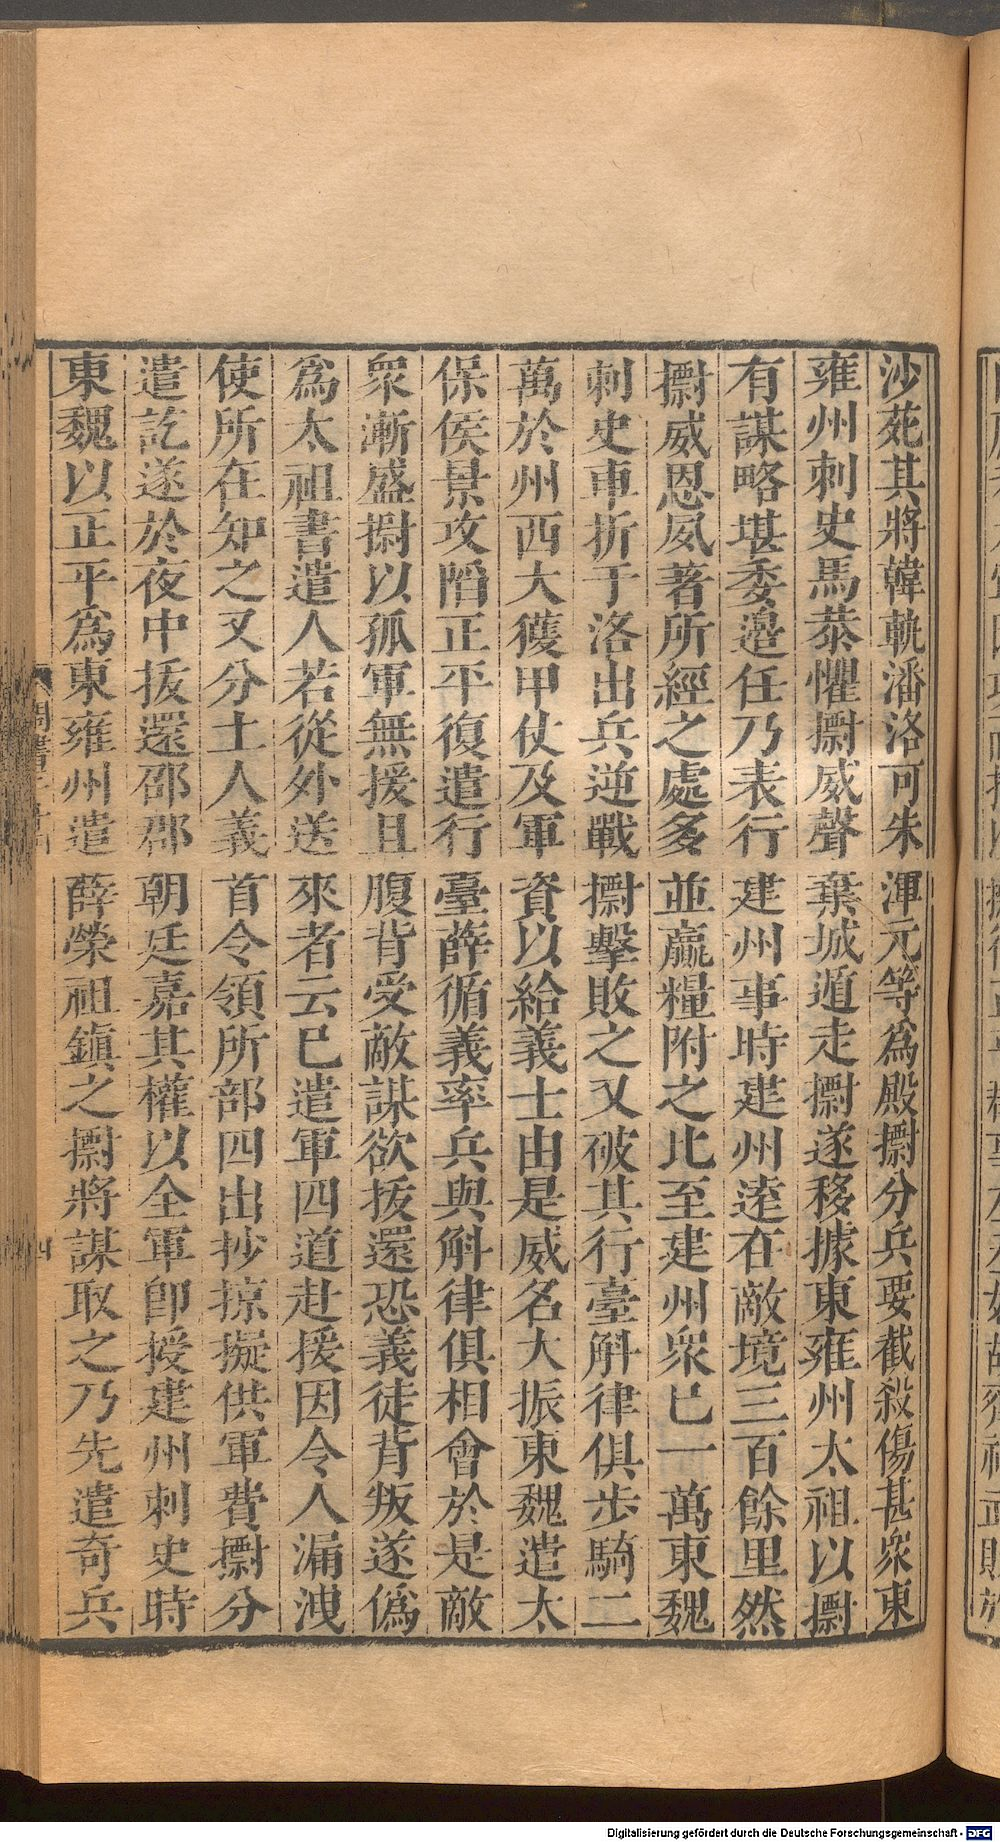 沙苑其將韓軌潘洛可朱渾元等爲殿㯹分兵要截殺傷甚衆東
雍州刺史馬恭懼㯹威聲棄城遁走㯹遂移據東雍州太祖以㯹
有謀略堪委邊任乃表行建州事時建州逺在敵境三百餘里然
㯹威恩夙著所經之處多並贏糧附之比至建州衆已一萬東魏
刺史車折于洛出兵逆戰㯹擊敗之又破其行臺斛律俱步騎二
萬於州西大獲甲仗及軍資以給義士由是威名大振東魏遣太
保侯景攻䧟正平復遣行臺薛循義率兵與斛律俱相會於是敵
衆漸盛㯹以孤軍無援且腹背受敵謀欲拔還恐義徒背叛遂僞
爲太祖書遣人若從外送來者云已遣軍四道赴援因令人漏洩
使所在知之又分土人義首令領所部四出抄掠擬供軍費㯹分
遣訖遂於夜中拔還邵郡朝廷嘉其權以全軍卽授建州刺史時
東魏以正平爲東雍州遣薛榮祖鎮之㯹將謀取之乃先遣奇兵
四
Digitalisierung gefördert durch die Deutsche Forschungsgemeinschaft - DFG